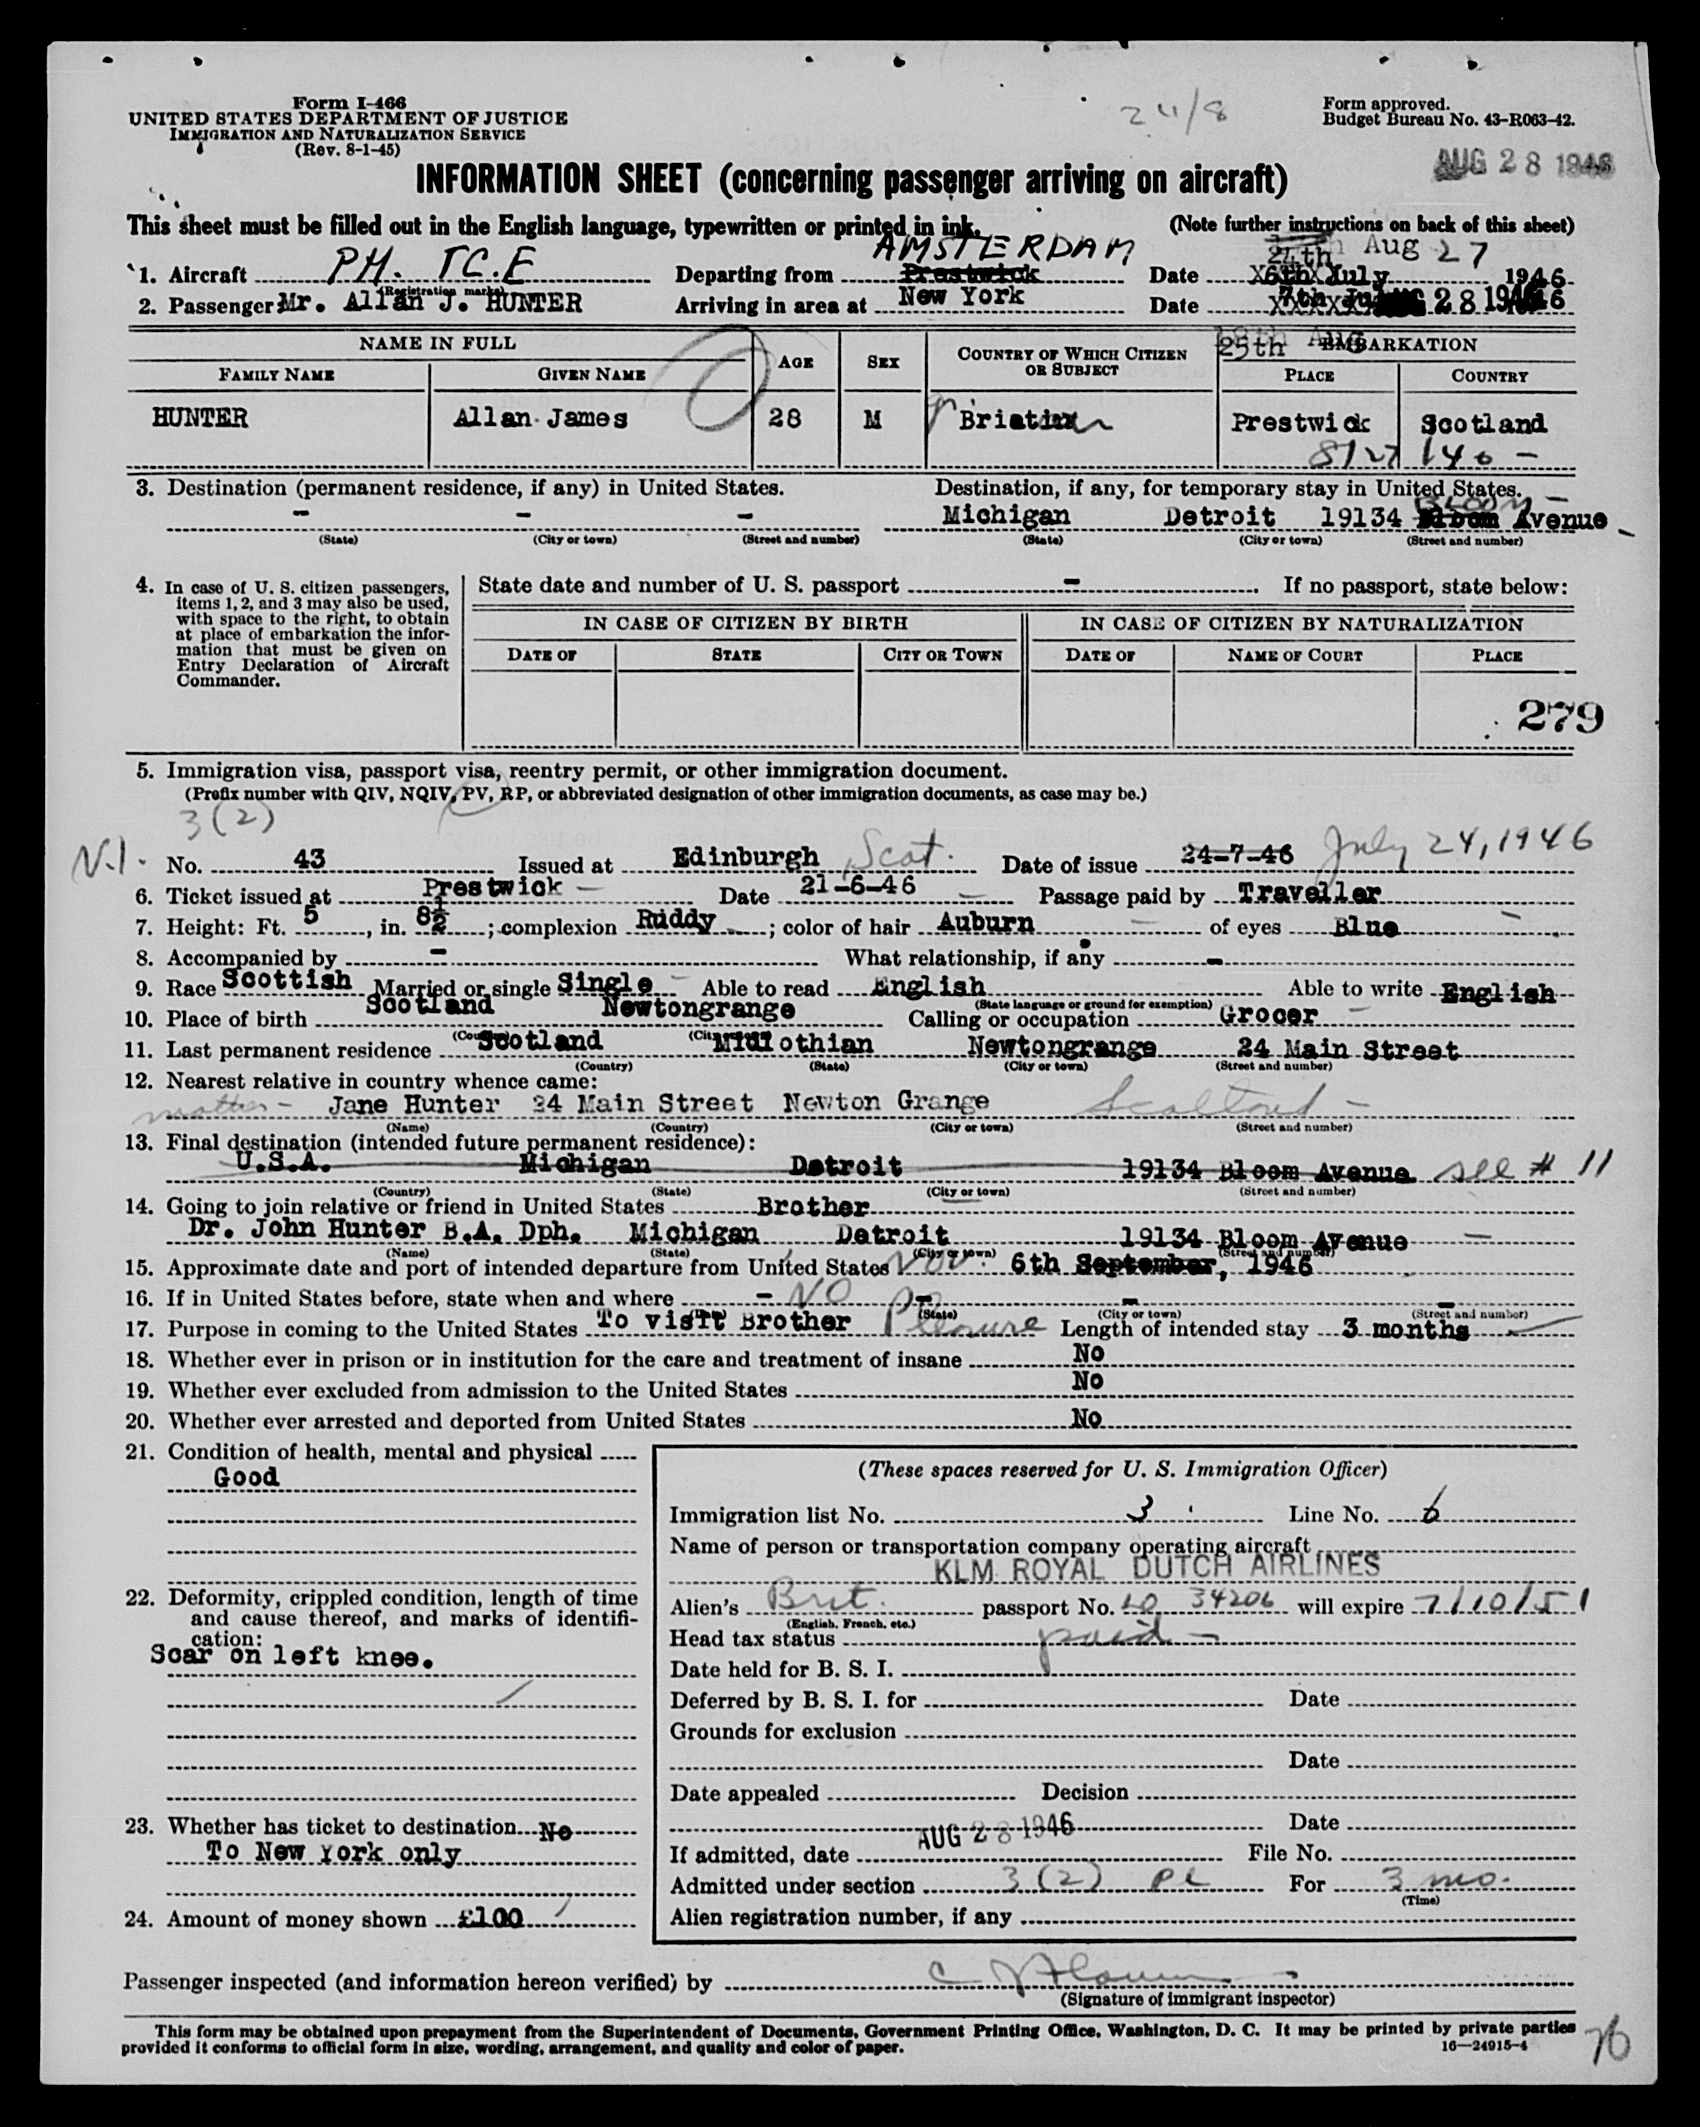 Form I-466
UNITED STATES DEPARTMENT OF JUSTICE
IMMIGRATION AND NATURALIZATION SERVICE
(Rev. 8-1-45)
24/8
Form approved.
Budget Bureau No. 43-R063-42.
AUG 28 1946
INFORMATION SHEET (concerning passenger arriving on aircraft)
This sheet must be filled out in the English language, typewritten or printed in ink.
(Note further instructions on back of this sheet)
24th Aug 27
1. Aircraft PH. TC.E Departing from Prestwick AMSTERDAM Date 6th July 1946
(Registration marks)
2. Passenger Mr. Allan J. HUNTER Arriving in area at New York Date 7th AUG 28 1946
25th Aug
NAME IN FULL AGE SEX COUNTRY OF WHICH CITIZEN OR SUBJECT EMBARKATION
FAMILY NAME GIVEN NAME PLACE COUNTRY
HUNTER Allan James 28 M Prestwick Scotland
8/27/46 -
3. Destination (permanent residence, if any) in United States. Destination, if any, for temporary stay in United States.
- - - Michigan Detroit 19134 Bloom Avenue
(State) (City or town) (Street and number) (State) (City or town) (Street and number)
4. In case of U. S. citizen passengers, items 1, 2, and 3 may also be used, with space to the right, to obtain at place of embarkation the information that must be given on Entry Declaration of Aircraft Commander.
State date and number of U. S. passport - . If no passport, state below:
IN CASE OF CITIZEN BY BIRTH IN CASE OF CITIZEN BY NATURALIZATION
DATE OF STATE CITY OR TOWN DATE OF NAME OF COURT PLACE
279
5. Immigration visa, passport visa, reentry permit, or other immigration document.
(Prefix number with QIV, NQIV, PV, RP, or abbreviated designation of other immigration documents, as case may be.)
3(2)
N.I. No. 43 Issued at Edinburgh Scot. Date of issue 24-7-46 July 24, 1946
6. Ticket issued at Prestwick Date 21-6-46 Passage paid by Traveller
7. Height: Ft. 5, in. 8½; complexion Ruddy; color of hair Auburn of eyes Blue
8. Accompanied by - What relationship, if any -
9. Race Scottish Married or single Single Able to read English Able to write English
(State language or ground for exemption)
10. Place of birth Scotland Newtongrange Calling or occupation Grocer
11. Last permanent residence Scotland Midlothian Newtongrange 24 Main Street
(Country) (State) (City or town) (Street and number)
12. Nearest relative in country whence came:
mother - Jane Hunter 24 Main Street Newton Grange Scotland -
(Name) (Country) (City or town) (Street and number)
13. Final destination (intended future permanent residence):
U.S.A. Michigan Detroit 19134 Bloom Avenue see # 11
(Country) (State) (City or town) (Street and number)
14. Going to join relative or friend in United States Brother
Dr. John Hunter B.A. Dph. Michigan Detroit 19134 Bloom Avenue
(Name) (State) (City or town) (Street and number)
15. Approximate date and port of intended departure from United States Nov. 6th September, 1946
16. If in United States before, state when and where - NO - - -
(State) (City or town) (Street and number)
17. Purpose in coming to the United States To visit Brother Pleasure Length of intended stay 3 months
18. Whether ever in prison or in institution for the care and treatment of insane No
19. Whether ever excluded from admission to the United States No
20. Whether ever arrested and deported from United States No
21. Condition of health, mental and physical
Good
22. Deformity, crippled condition, length of time and cause thereof, and marks of identification:
Scar on left knee.
23. Whether has ticket to destination No
To New York only
24. Amount of money shown £100
(These spaces reserved for U. S. Immigration Officer)
Immigration list No. 3 Line No. 6
Name of person or transportation company operating aircraft
KLM ROYAL DUTCH AIRLINES
Alien's Brit. passport No. LO 34206 will expire 7/10/51
(English, French, etc.)
Head tax status paid -
Date held for B. S. I.
Deferred by B. S. I. for Date
Grounds for exclusion
Date
Date appealed Decision
Date
AUG 28 1946
If admitted, date File No.
Admitted under section 3(2) Pl For 3 mo.
(Time)
Alien registration number, if any
Passenger inspected (and information hereon verified) by
(Signature of immigrant inspector)
This form may be obtained upon prepayment from the Superintendent of Documents, Government Printing Office, Washington, D. C. It may be printed by private parties
provided it conforms to official form in size, wording, arrangement, and quality and color of paper.
16—24915-4
76